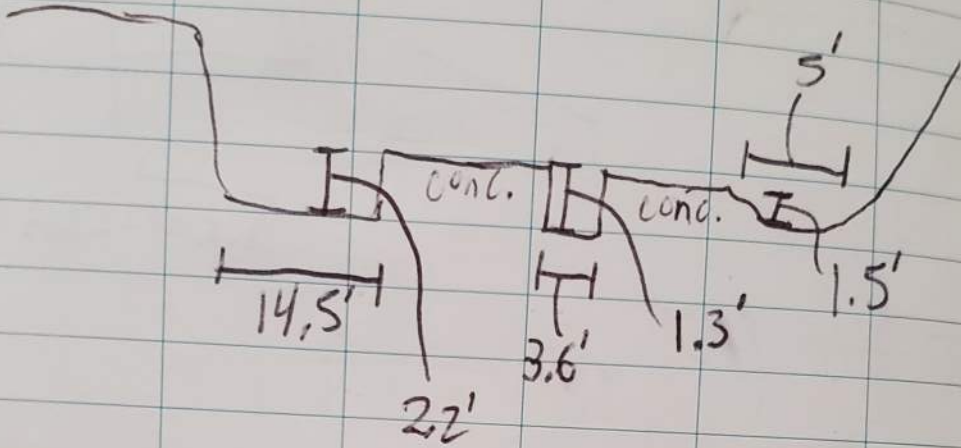 5'
conc.
conc.
14,5'
3.6'
1.3'
1.5'
2.2'